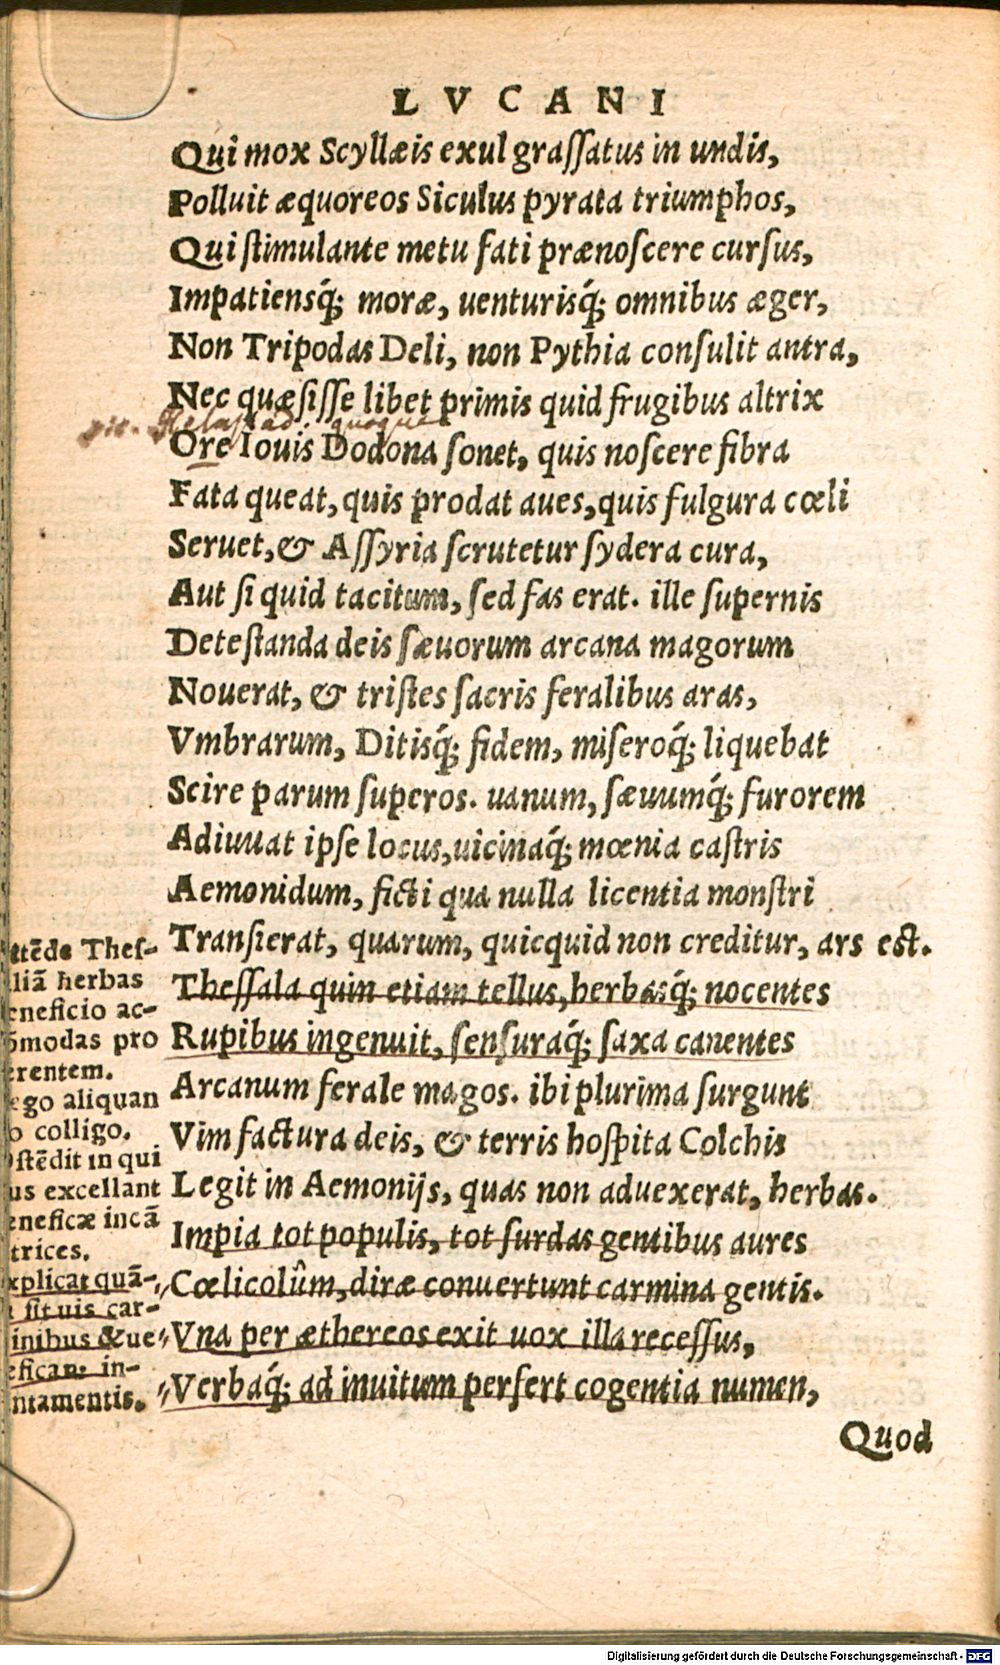 LVCANI
Qui mox Scyllæis exul grassatus in undis,
Polluit æquoreos Siculus pyrata triumphos,
Qui stimulante metu fati prænoscere cursus,
Impatiensq́; moræ, uenturisq́; omnibus æger,
Non Tripodas Deli, non Pythia consulit antra,
Nec quæsisse libet primis quid frugibus altrix
quoque
Ore Iouis Dodona sonet, quis noscere fibra
Fata queat, quis prodat aues, quis fulgura cœli
Seruet, & Assyria scrutetur sydera cura,
Aut si quid tacitum, sed fas erat. ille supernis
Detestanda deis sæuorum arcana magorum
Nouerat, & tristes sacris feralibus aras,
Vmbrarum, Ditisq́; fidem, miseroq́; liquebat
Scire parum superos. uanum, sæuumq́; furorem
Adiuuat ipse locus, uicinaq́; mœnia castris
Aemonidum, ficti qua nulla licentia monstri
Transierat, quarum, quicquid non creditur, ars est.
Thessala quin etiam tellus, herbasq́; nocentes
Rupibus ingenuit, sensuraq́; saxa canentes
Arcanum ferale magos. ibi plurima surgunt
Vim factura deis, & terris hospita Colchis
Legit in Aemonijs, quas non aduexerat, herbas.
Impia tot populis, tot surdas gentibus aures
Cœlicolûm, diræ conuertunt carmina gentis.
Vna per æthereos exit uox illa recessus,
Verbaq́; ad inuitum perfert cogentia numen,
Quod
tẽde Thes-
liã herbas
eneficio ac-
õmodas pro
erentem.
ego aliquan
o colligo.
ostẽdit in qui
us excellant
eneficæ incã
trices.
xplicat quã-
sit uis car-
inibus & ue
efican: in-
ntamentis.
Digitalisierung gefördert durch die Deutsche Forschungsgemeinschaft - DFG